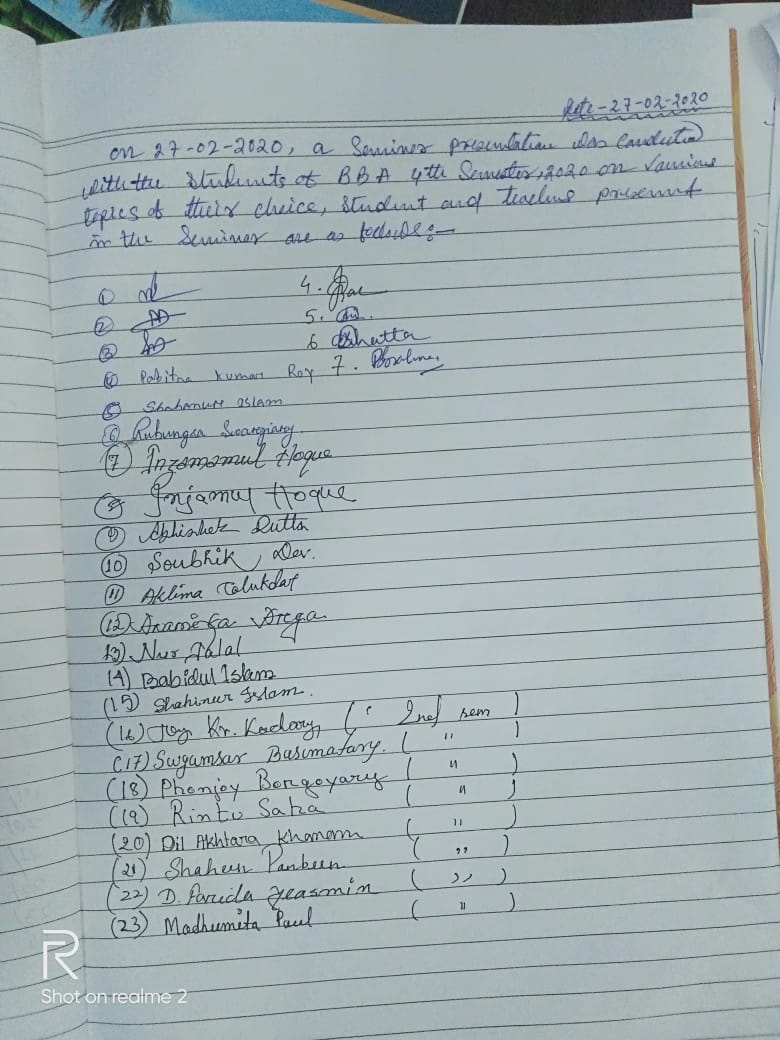 Date-27-02-2020
On 27-02-2020, a Seminar presentation was conducted
with the students of BBA 4th Semester, 2020 on various
topics of their choice, student and teachers present
in the Seminar are as follows:-
① 4.
② 5.
③ 6 Dhatta
④ Pabitra Kumar Roy 7.
⑤ Shahanur Islam
⑥ Rubungsa Swargiary
⑦ Inzamamul Hoque
⑧ Injamul Hoque
⑨ Abhishek Dutta
⑩ Soubhik Dev.
⑪ Aklima Talukdar
⑫
13) Nur Jalal
14) Babidul Islam
(15) Shahinur Islam.
(16) Joy Kr. Kadary, ( 2nd sem )
(17) Swgumsar Basumatary. ( " )
(18) Phonjoy Borgoyary ( " )
(19) Rintu Saha ( " )
(20) Dil Akhtara Khanam ( " )
(21) Shaheen Parbeen ( " )
(22) D. Farida Yeasmin ( " )
(23) Madhumita Paul ( " )
R
Shot on realme 2